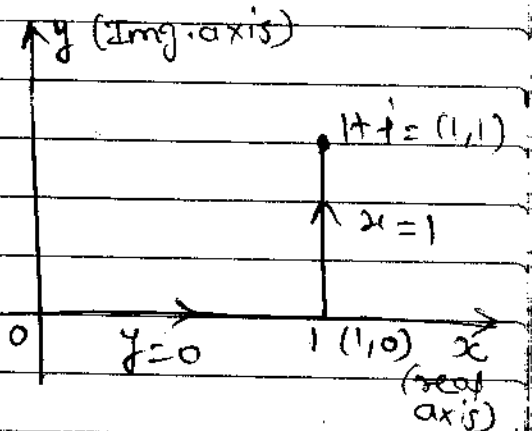 y (Img. axis)
1+i = (1,1)
x = 1
0
y=0
1 (1,0)
x
(real
axis)